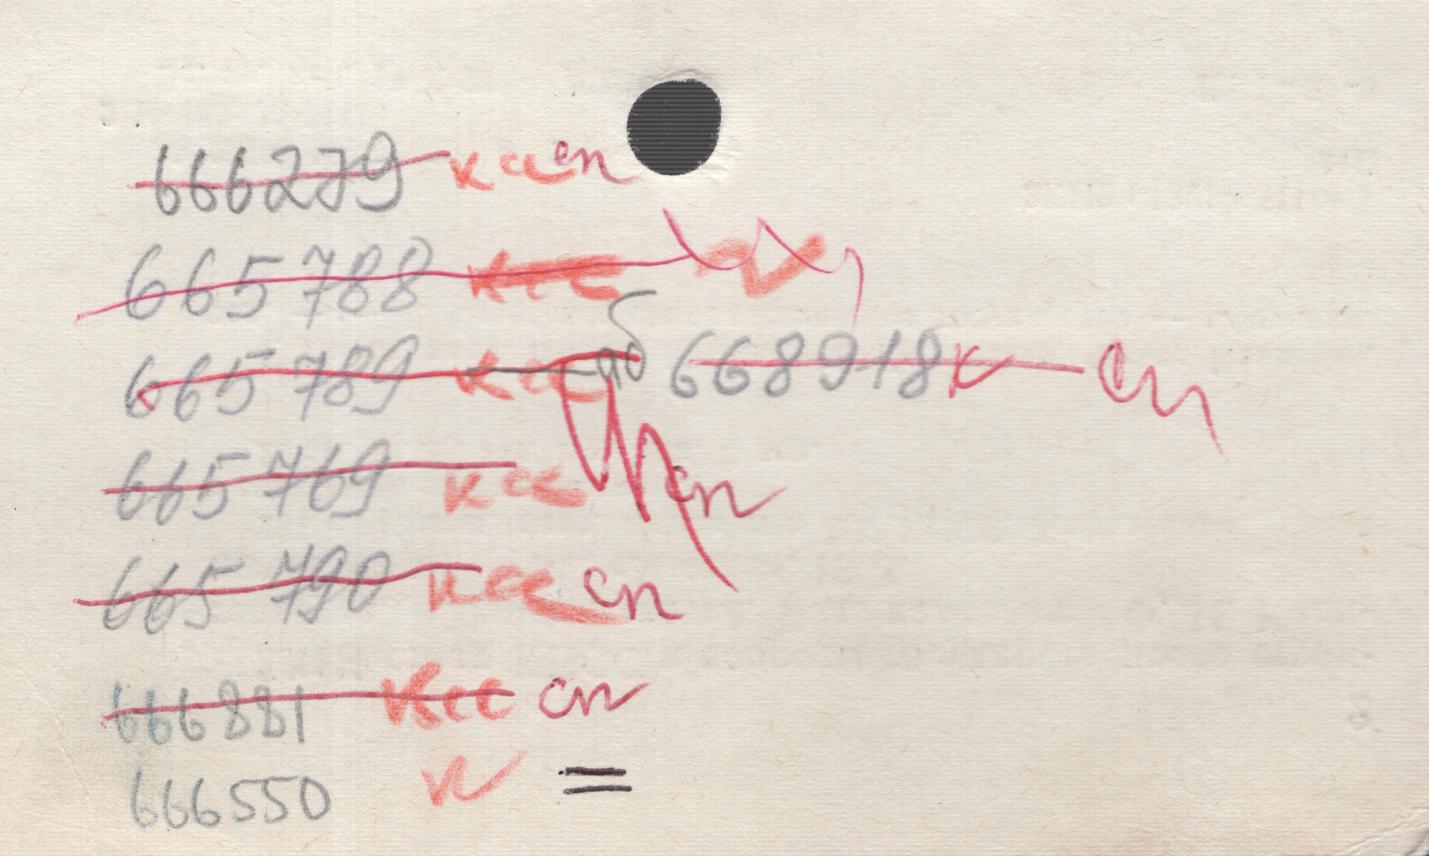 666279 ксс сп
665788 ксс
665789 ксс 668918 к сп
665769 ксс сп
665790 ксс сп
666881 ксс сп
666550 к =